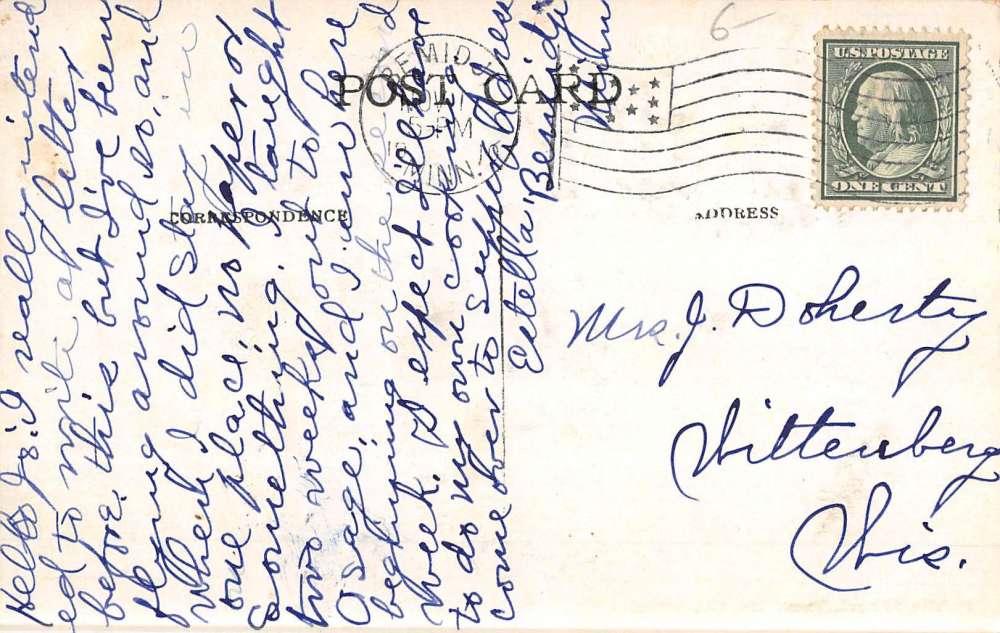 Hello Jo: I really intend
ed to write a letter
before this but I've been
flying around so, and
when I did stay in
one place, no paper or
something. I taught
two weeks out to here
Osage, and I'm here
beginning on the 2nd
week. I expect I'll have
to do my own cooking for
come over to supper
Estella, Bemidji
Minn
POST CARD
CORRESPONDENCE
ADDRESS
BEMIDJI
6 PM
MINN.
6
U.S. POSTAGE
ONE CENT
Mrs. J. Doherty
Wittenberg
Wis.